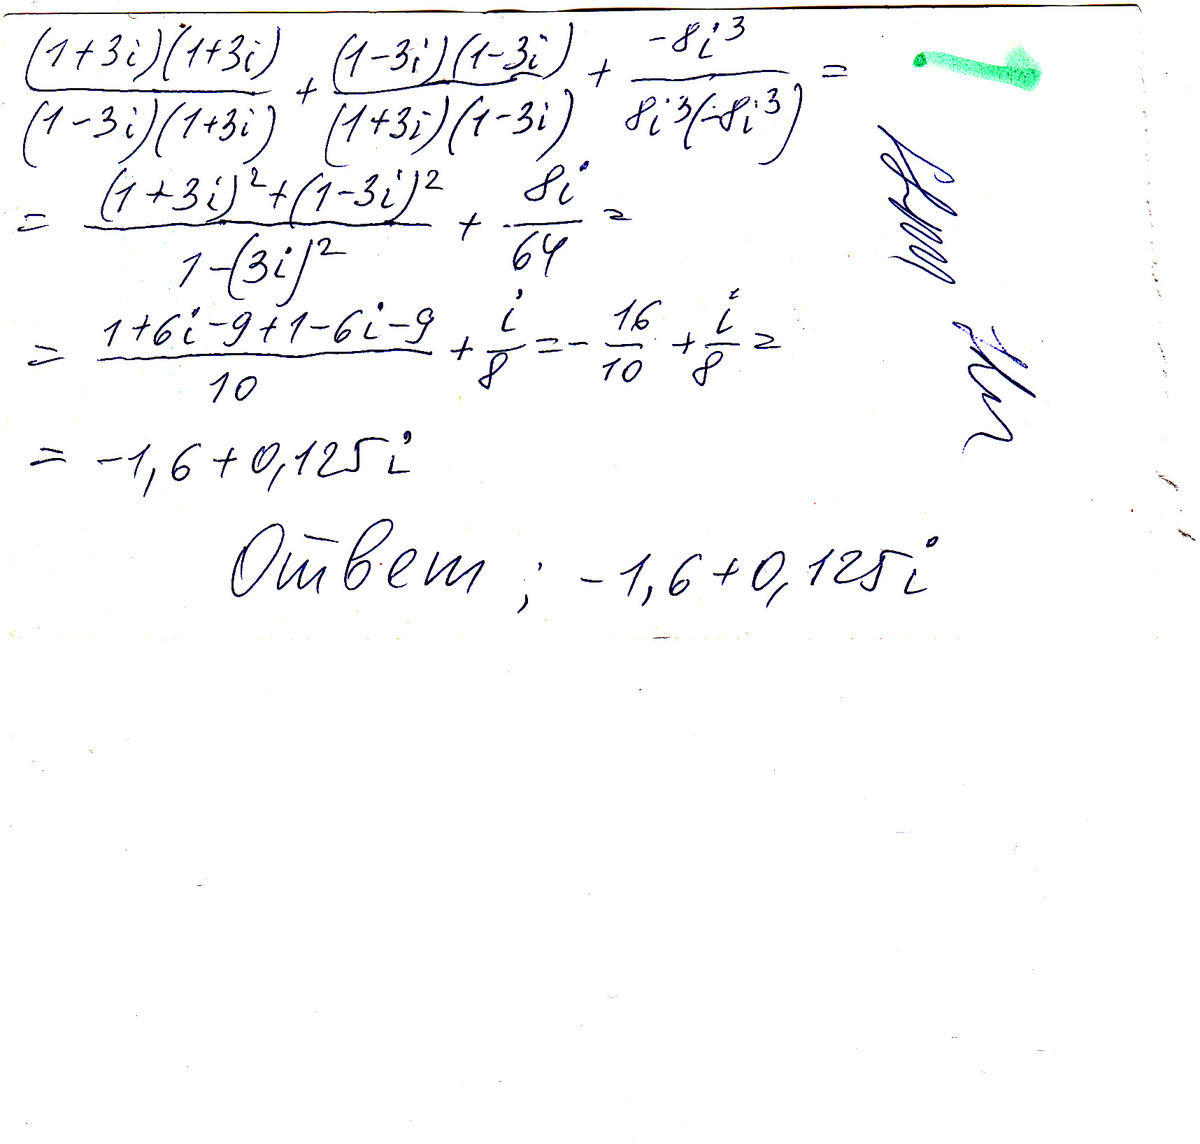 (1+3i)(1+3i)/(1-3i)(1+3i) + (1-3i)(1-3i)/(1+3i)(1-3i) + -8i³/8i³(-8i³) =
= (1+3i)²+(1-3i)²/1-(3i)² + 8i/64 =
= 1+6i-9+1-6i-9/10 + i/8 = - 16/10 + i/8 =
= -1,6+0,125i
Ответ; -1,6+0,125i